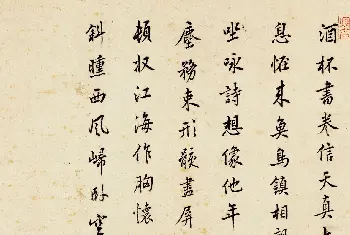 酒杯書卷信天真
息恠来魚鳥鎮相
坐咏詩想像他年
塵務束形骸盡屏
頓收江海作胸懷
斜曛西風歸卧空